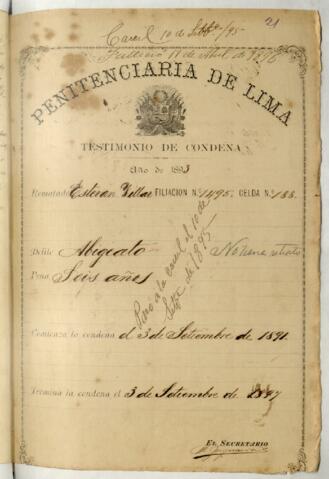 21
Carcel 10 de Setbre/95
Falleció 11 de Abril de 1896
PENITENCIARIA DE LIMA
TESTIMONIO DE CONDENA
Año de 1893
Rematado Esteван Villar FILIACION N.º 1495. CELDA N.º 188.
Delito Abigeato
No tiene retrato
Pena Seis años
Paso a la carcel el 10 de
Setbre de 1895
Comienza la condena el 3 de Setiembre de 1891.
Termina la condena el 3 de Setiembre de 1897
EL SECRETARIO